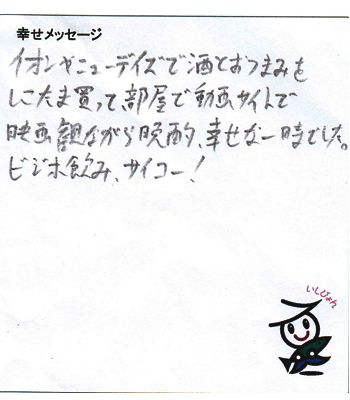 幸せメッセージ
イオンやニューデイズで酒とおつまみを
しこたま買って部屋で動画サイトで
映画観ながら晩酌、幸せな一時でした。
ビジホ飲み、サイコー!
いしぴょん